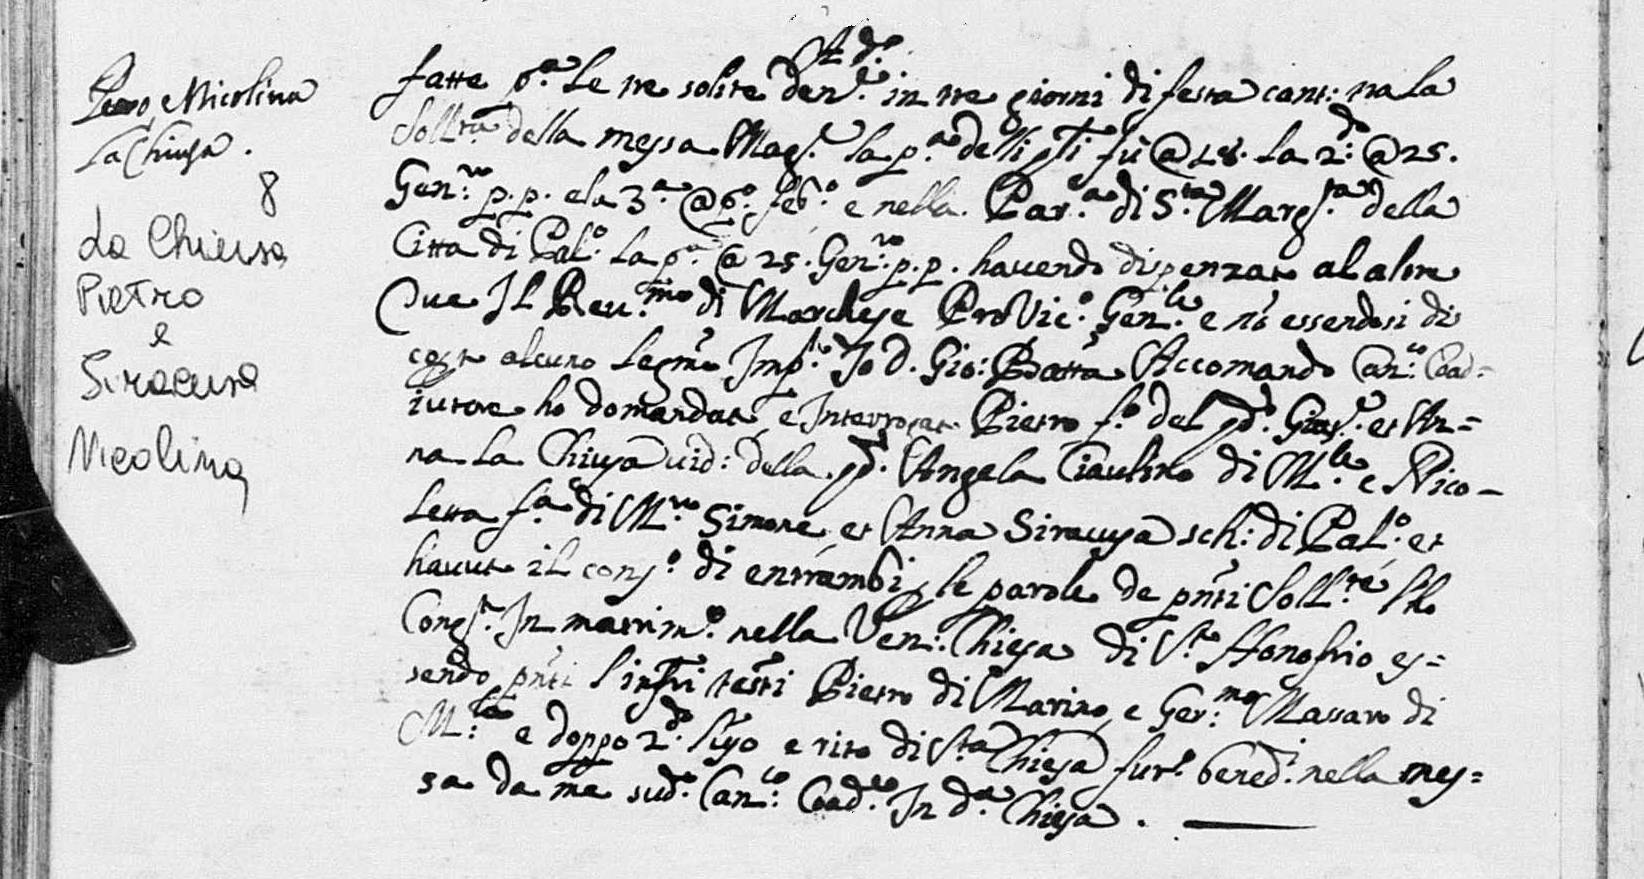 A dº.
Pietro, e Nicolina
La Chiusa.
8
La Chiusa
Pietro
e
Siracusa
Nicolina
fatte pª. le tre solite denⁱᵉ. in tre giorni di festa cant: na la
Sollᵗᵃ: della messa Magʳ. la pª. delli pⁿᵗⁱ fù @ 18. la 2ᵈᵃ: @ 25.
Genʳᵒ: p.p. e la 3ª @ pº. febº. e nella Parª. di Sᵗᵃ Margᵗᵃ della
Citta di Palº. la pª. @ 25. Genʳᵒ: p.p. havendo dispenzato al altre
due Il Revᵐᵒ. di Marchese Pro Vicº. Genˡᵉ. e nō essendosi dis
costo alcuno legmº Impᵗᵒ. Io D. Gio: Batta Accomando Canᶜᵒ: Coad=
iutore ho domandato, e Interrogato Pietro fº. del qᵈ. Giusᵉ. et An=
na La Chiusa vid: della qᵈ. Angela Ciaulino di Mˡᵉ. e Nico=
letta fª. di Mʳᵒ Simone et Anna Siracusa sch: di Palº. et
havuto il consº. di entrambi p le parole de pⁿᵗⁱ Sollᵗᵉ li ho
Congᵗⁱ. In matrimº. nella Ven: Chiesa di Sᵗᵒ Honofrio es=
sendo pⁿᵗⁱ l'infⁱ testⁱ Pietro di Marino, e Gerᵐᵒ: Massaro di
Mˡᵉ: e doppo 2ᵈᵒ. l'uso e rito di Sᵗᵃ Chiesa furº. benedⁱ. nella mes=
sa da me sudº. Canᶜᵒ: Coadʳᵉ. In dª. Chiesa.